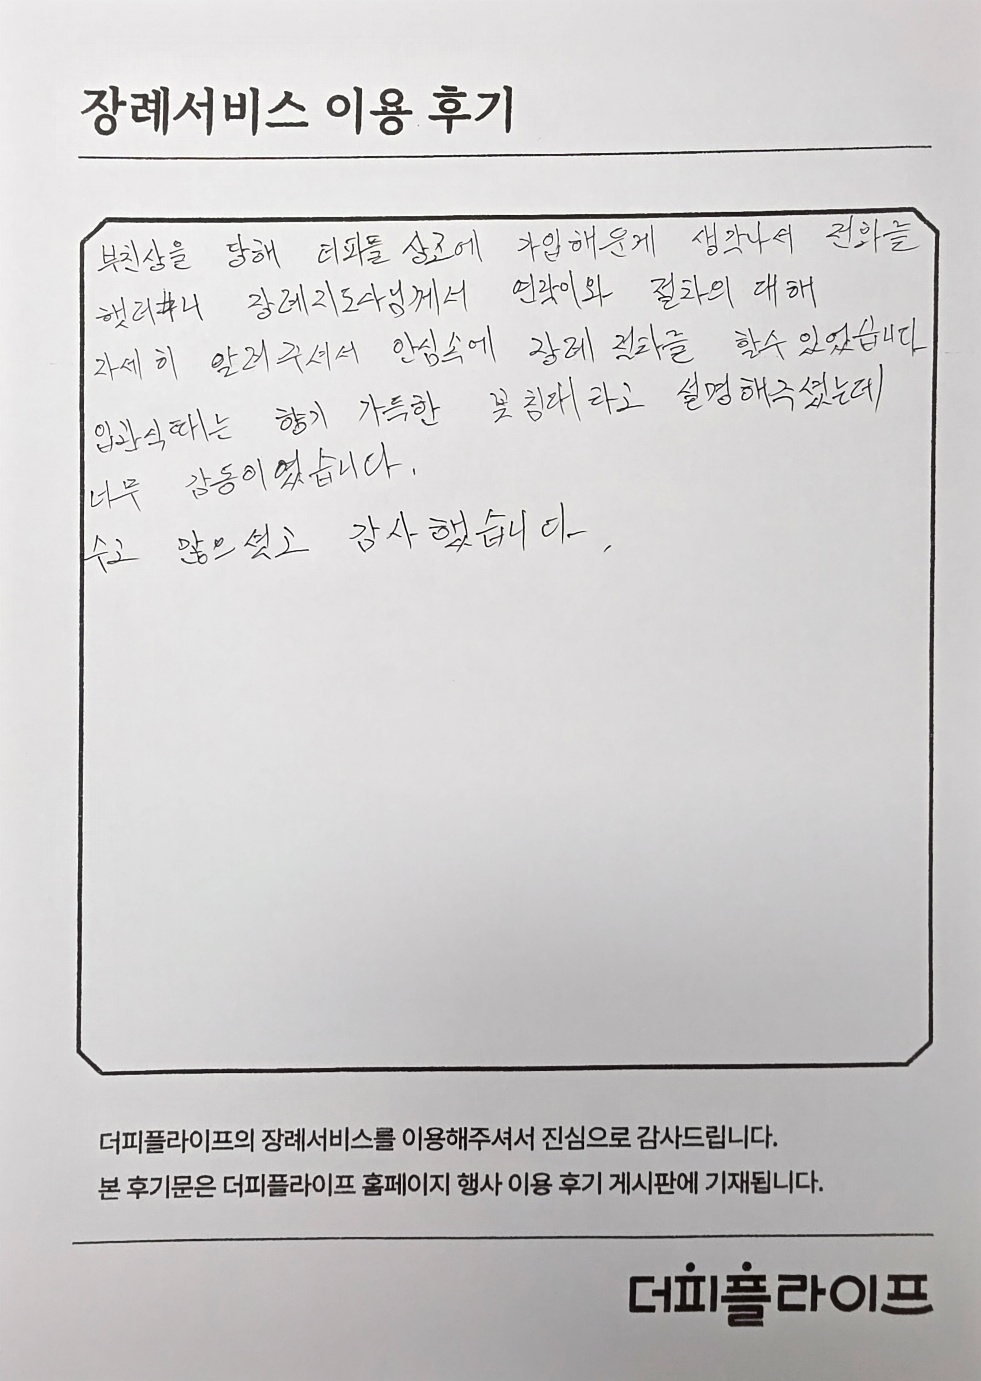 장례서비스 이용 후기
부친상을 당해 더피플 상조에 가입해둔게 생각나서 전화를
했더니 장례지도사님께서 연락이와 절차의 대해
자세히 알려주셔서 안심속에 장례 절차를 할수 있었습니다
입관식때는 향기 가득한 꽃침대라고 설명해주셨는데
너무 감동이였습니다.
수고 많으셨고 감사했습니다.
더피플라이프의 장례서비스를 이용해주셔서 진심으로 감사드립니다.
본 후기문은 더피플라이프 홈페이지 행사 이용 후기 게시판에 기재됩니다.
더피플라이프